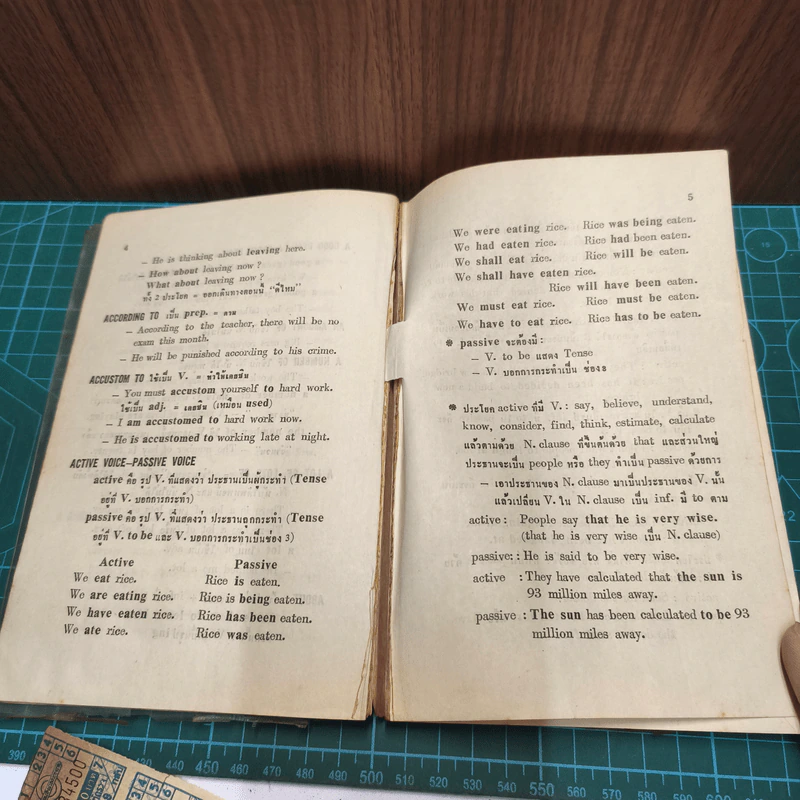 4
– He is thinking about leaving here.
– How about leaving now ?
What about leaving now ?
ทั้ง 2 ประโยค = ออกเดินทางตอนนี้ "ดีไหม"
ACCORDING TO เป็น prep. = ตาม
– According to the teacher, there will be no
exam this month.
– He will be punished according to his crime.
ACCUSTOM TO ใช้เป็น V. = ทำให้เคยชิน
– You must accustom yourself to hard work.
ใช้เป็น adj. = เคยชิน (เหมือน used)
– I am accustomed to hard work now.
– He is accustomed to working late at night.
ACTIVE VOICE–PASSIVE VOICE
active คือ รูป V. ที่แสดงว่า ประธานเป็นผู้กระทำ (Tense
อยู่ที่ V. บอกการกระทำ)
passive คือ รูป V. ที่แสดงว่า ประธานถูกกระทำ (Tense
อยู่ที่ V. to be และ V. บอกการกระทำเป็นช่อง 3)
Active Passive
We eat rice. Rice is eaten.
We are eating rice. Rice is being eaten.
We have eaten rice. Rice has been eaten.
We ate rice. Rice was eaten.
5
We were eating rice. Rice was being eaten.
We had eaten rice. Rice had been eaten.
We shall eat rice. Rice will be eaten.
We shall have eaten rice.
Rice will have been eaten.
We must eat rice. Rice must be eaten.
We have to eat rice. Rice has to be eaten.
* passive จะต้องมี :
– V. to be แสดง Tense
– V. บอกการกระทำเป็น ช่อง 3
* ประโยค active ที่มี V. : say, believe, understand,
know, consider, find, think, estimate, calculate
แล้วตามด้วย N. clause ที่ขึ้นต้นด้วย that และส่วนใหญ่
ประธานจะเป็น people หรือ they ทำเป็น passive ด้วยการ
– เอาประธานของ N. clause มาเป็นประธานของ V. นั้น
แล้วเปลี่ยน V. ใน N. clause เป็น inf. มี to ตาม
active : People say that he is very wise.
(that he is very wise เป็น N. clause)
passive: : He is said to be very wise.
active : They have calculated that the sun is
93 million miles away.
passive : The sun has been calculated to be 93
million miles away.
390 440 450 460 470 480 490 500 510 520 530 540 550 560 570 580 590 600 610
2 3 4 5 6
4500